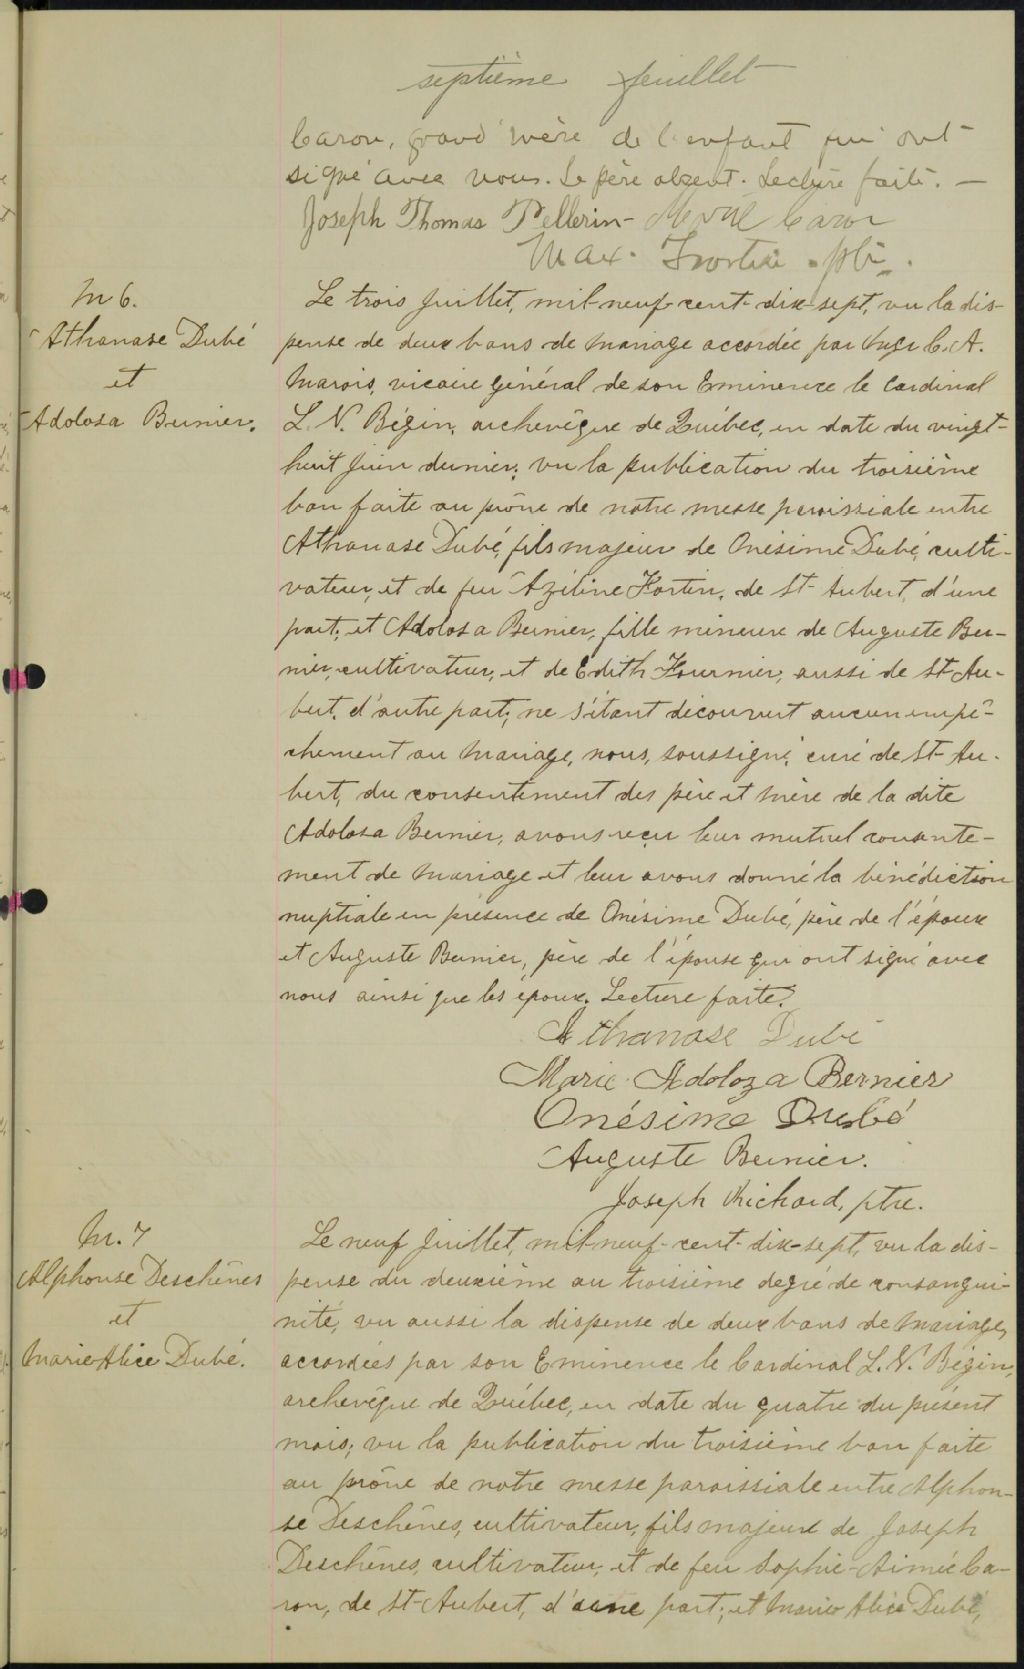 septième feuillet
Caron, grand'mère de l'enfant qui ont
signé avec nous. Le père absent. Lecture faite. —
Joseph Thomas Pellerin - Caron
Max. Fortin ptr.
M 6.
Athanase Dubé
et
Adolosa Bernier.
Le trois Juillet, mil-neuf-cent-dix-sept, vu la dis-
pense de deux bans de mariage accordée par Mgr C. A.
Marois, vicaire général de son Eminence le Cardinal
L. N. Bégin, archevêque de Québec, en date du vingt-
huit Juin dernier; vu la publication du troisième
ban faite au prône de notre messe paroissiale entre
Athanase Dubé, fils majeur de Onésime Dubé, culti-
vateur, et de feu Azéline Fortin, de St-Aubert, d'une
part; et Adolosa Bernier, fille mineure de Auguste Ber-
nier, cultivateur, et de Edith Fournier, aussi de St-Au-
bert, d'autre part; ne s'étant découvert aucun empê-
chement au mariage, nous, soussigné, curé de St-Au-
bert, du consentement des père et mère de la dite
Adolosa Bernier, avons reçu leur mutuel consente-
ment de mariage et leur avons donné la bénédiction
nuptiale en présence de Onésime Dubé, père de l'époux
et Auguste Bernier, père de l'épouse qui ont signé avec
nous ainsi que les époux. Lecture faite.
Athanase Dubé
Marie Adoloza Bernier
Onésime Dubé
Auguste Bernier.
Joseph Richard, ptre.
M. 7
Alphonse Deschênes
et
Marie Alice Dubé.
Le neuf Juillet, mil-neuf-cent-dix-sept, vu la dis-
pense du deuxième au troisième degré de consangui-
nité, vu aussi la dispense de deux bans de mariage,
accordées par son Eminence le Cardinal L. N. Bégin,
archevêque de Québec, en date du quatre du présent
mois; vu la publication du troisième ban faite
au prône de notre messe paroissiale entre Alphon-
se Deschênes, cultivateur, fils majeur de Joseph
Deschênes, cultivateur, et de feu Sophie-Aimée Ca-
ron, de St-Aubert, d'une part; et Marie Alice Dubé,